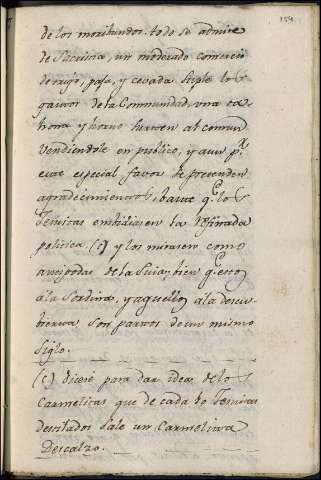 159
de los moribundos. todo se admire
de Sacrisia, un moderado comercio
de trigo, paja, y cevada suple lo
gastos de la Communidad, una ta
hona y horno hurven al comun
Vendiendole en publico, y aun pr.
este especial favor se pretenden
agradecimientos, baste q.e lo
Jesuitas embidiasen la refinada
politica (c) y los mirasen como
antipodas de la Suia, bien q.e estos
á la Sordina, y aquellos á la descu-
bierta son partos de un mismo
siglo.
(c) diceré para dar idea de lo
Carmelitas que de cada 60 Jesuitas
destilados sale un Carmelita
Descalzo.